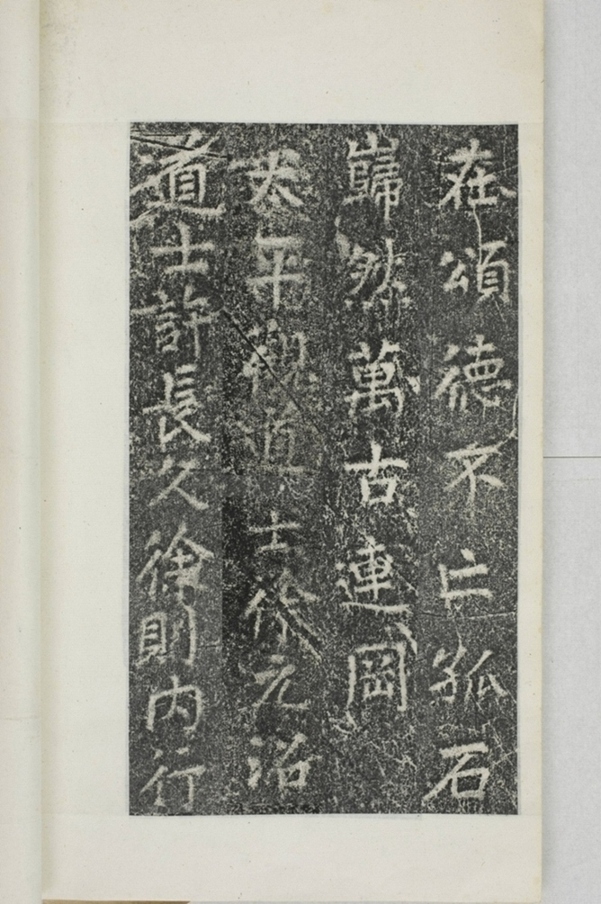 在頌德不亡孤石
巋然萬古連岡
太平觀道士徐元沼
道士許長久徐則內行